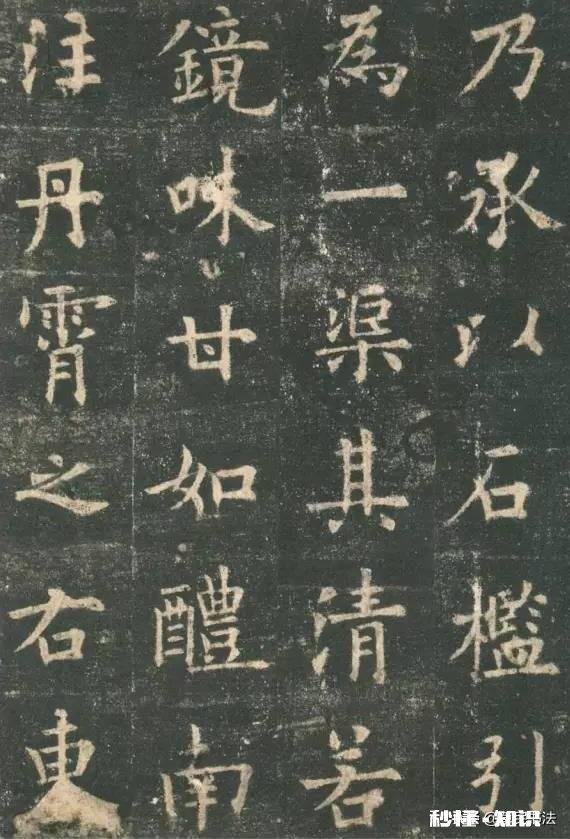 乃承以石檻引
為一渠其清若
鏡味甘如醴南
注丹霄之右東
秒懂 知识
法